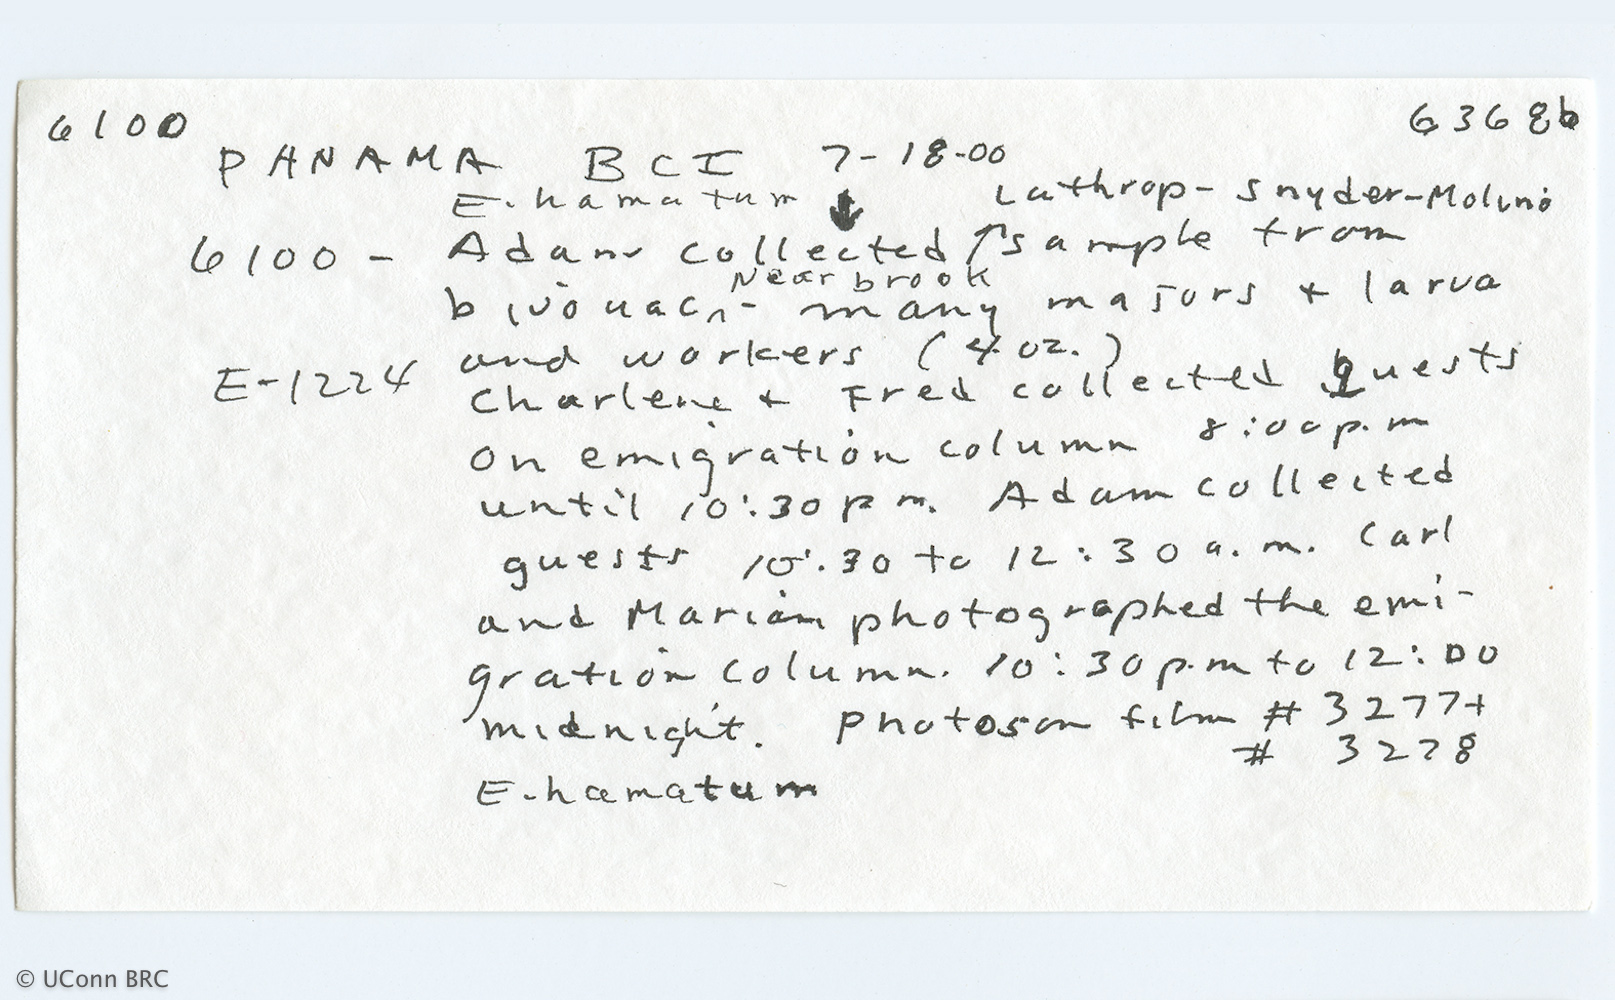 6100
6368b
PANAMA BCI 7-18-00
E. hamatum ↓ Lathrop-Snyder-Molino
6100 - Adam collected ↑ sample from
near brook
bivouac ‸ - many majors + larva
and workers (4 oz.)
E-1224 Charlene + Fred collected guests
on emigration column 8:00 p.m
until 10:30 p m. Adam collected
guests 10:30 to 12:30 a.m. Carl
and Marian photographed the emi-
gration column. 10:30 p.m to 12:00
midnight. Photos on film # 3277 +
# 3278
E. hamatum
© UConn BRC